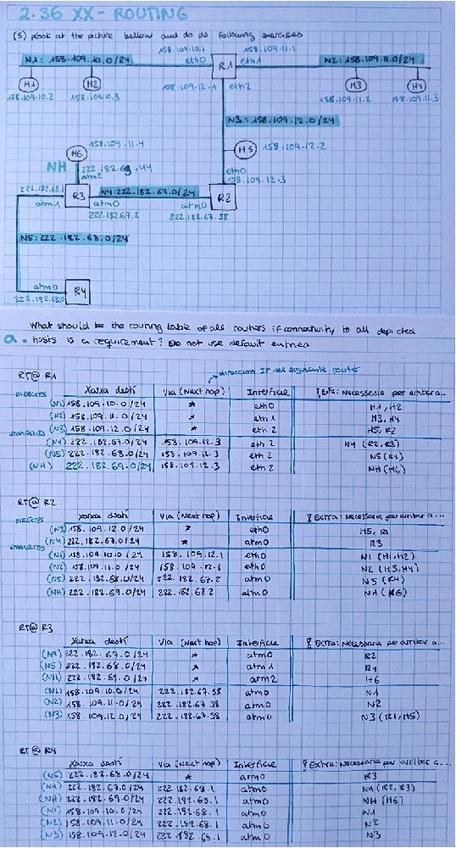 2.36 XX - ROUTING
(5) Look at the picture bellow and do de following exercises
158.109.10.1 158.109.11.1
N1: 158.109.10.0/24 eth0 R1 eth1 N2: 158.109.11.0/24
H1 H2 H3 H4
158.109.10.2 158.109.10.3 158.109.12.1 eth2 158.109.11.2 158.109.11.3
N3: 158.109.12.0/24
158.109.11.4
H6 H5 158.109.12.2
NH 222.182.69.44
atm2 eth0
158.109.12.3
222.182.68.1 R3 N4: 222.182.67.0/24 R2
atm1 atm0 atm0
222.182.67.2 222.182.67.38
N5: 222.182.68.0/24
atm0 R4
What should be the routing table of all routers if connectivity to all depicted
a. hosts is a requirement? Do not use default entries
direccion IP del siguiente router
RT@ R1
Xarxa destí Via (Next hop) Interfície Extra: Necessària per arribar a...
DIRECTES (N1) 158.109.10.0/24 * eth0 H1, H2
(N2) 158.109.11.0/24 * eth1 H3, H4
(N3) 158.109.12.0/24 * eth2 H5, R2
(N4) 222.182.67.0/24 158.109.12.3 eth2 N4 (R2, R3)
(N5) 222.182.68.0/24 158.109.12.3 eth2 N5 (R4)
(NH) 222.182.69.0/24 158.109.12.3 eth2 NH (H6)
RT@ R2
Xarxa destí Via (Next hop) Interfície Extra: Necessària per arribar a...
DIRECTES (N3) 158.109.12.0/24 * eth0 H5, R1
(N4) 222.182.67.0/24 * atm0 R3
(N1) 158.109.10.0/24 158.109.12.1 eth0 N1 (H1, H2)
(N2) 158.109.11.0/24 158.109.12.1 eth0 N2 (H3, H4)
(N5) 222.182.68.0/24 222.182.67.2 atm0 N5 (R4)
(NH) 222.182.69.0/24 222.182.67.2 atm0 NH (H6)
RT@ R3
Xarxa destí Via (Next hop) Interfície Extra: Necessària per arribar a...
(N4) 222.182.67.0/24 * atm0 R2
(N5) 222.182.68.0/24 * atm1 R4
(NH) 222.182.69.0/24 * atm2 H6
(N1) 158.109.10.0/24 222.182.67.38 atm0 N1
(N2) 158.109.11.0/24 222.182.67.38 atm0 N2
(N3) 158.109.12.0/24 222.182.67.38 atm0 N3 (R1, H5)
RT@ R4
Xarxa destí Via (Next hop) Interfície Extra: Necessària per arribar a...
(N5) 222.182.68.0/24 * atm0 R3
(N4) 222.182.67.0/24 222.182.68.1 atm0 N4 (R2, R3)
(NH) 222.182.69.0/24 222.182.68.1 atm0 NH (H6)
(N1) 158.109.10.0/24 222.182.68.1 atm0 N1
(N2) 158.109.11.0/24 222.182.68.1 atm0 N2
(N3) 158.109.12.0/24 222.182.68.1 atm0 N3